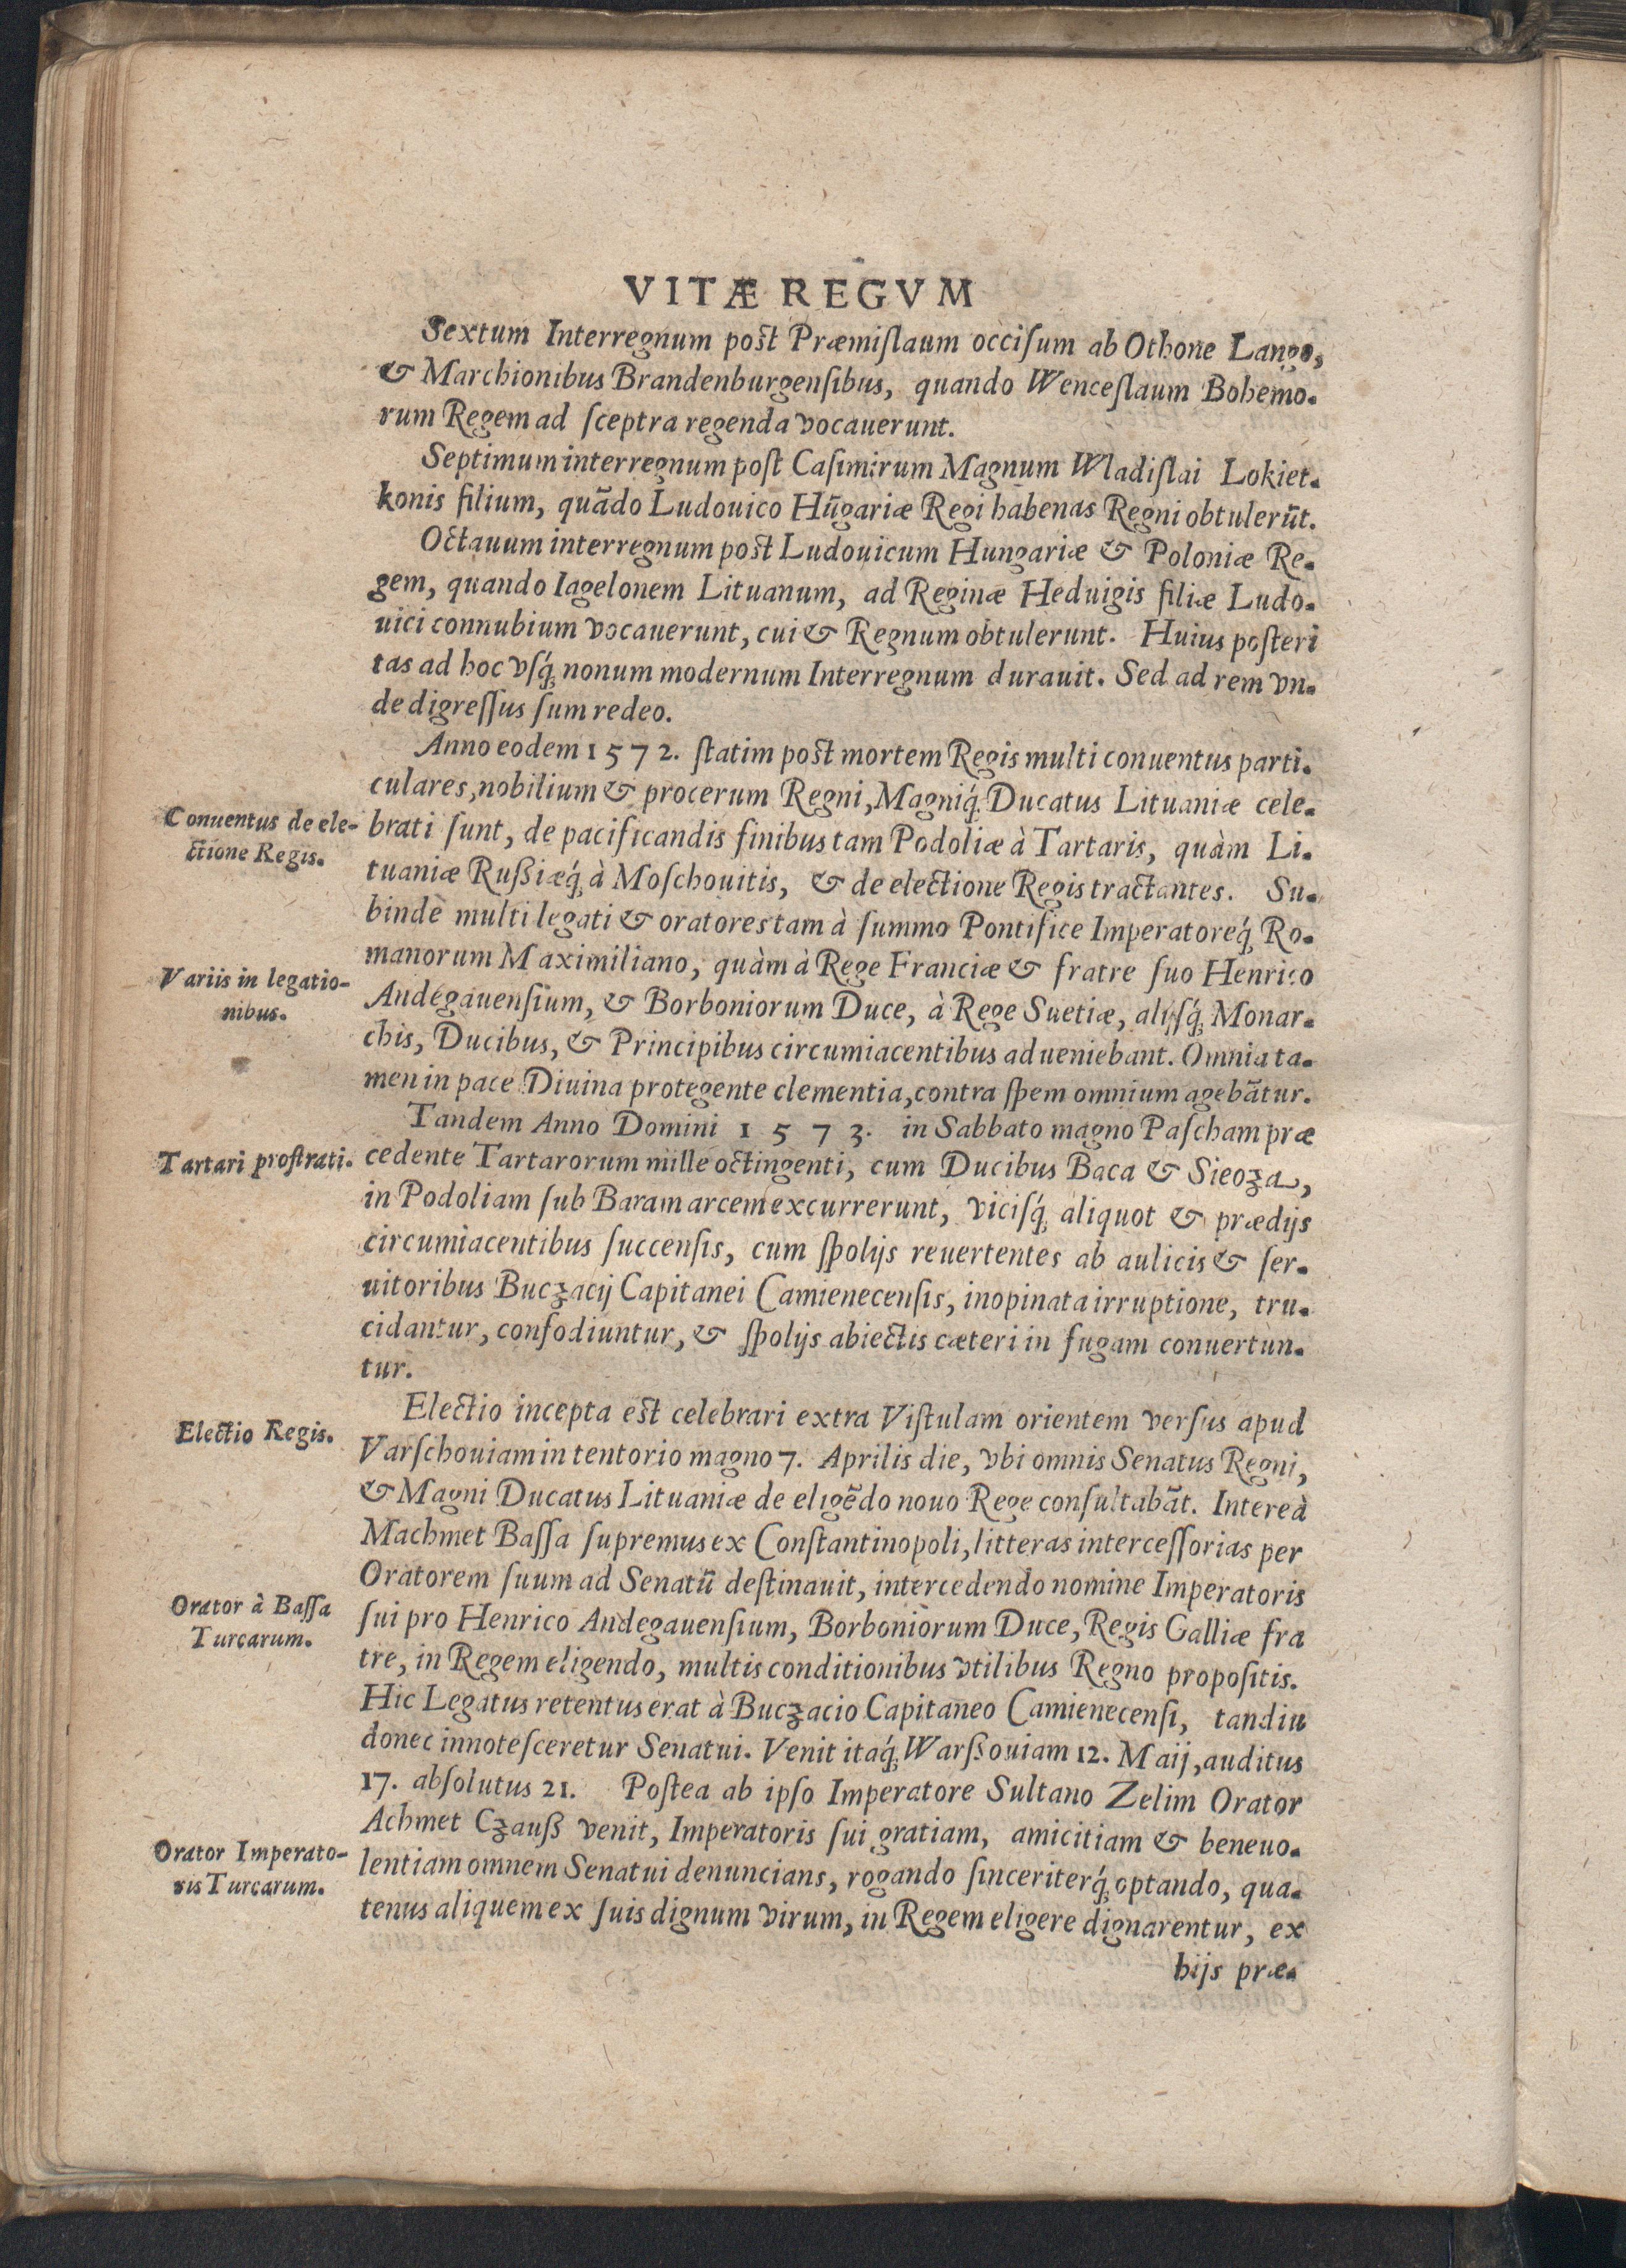 VITÆ REGVM
Sextum Interregnum post Præmiſlaum occiſum ab Othone Lango,
& Marchionibus Brandenburgenſibus, quando Wenceſlaum Bohemo-
rum Regem ad ſceptra regenda vocauerunt.
Septimum interregnum poſt Caſimirum Magnum Wladiſlai Lokiet-
konis filium, quādo Ludouico Hūgariæ Regi habenas Regni obtulerūt.
Octauum interregnum post Ludouicum Hungariæ & Poloniæ Re-
gem, quando Iagelonem Lituanum, ad Reginæ Heduigis filiæ Ludo-
uici connubium vocauerunt, cui & Regnum obtulerunt. Huius poſteri
tas ad hoc vſq́; nonum modernum Interregnum durauit. Sed ad rem vn-
de digreſſus ſum redeo.
Anno eodem 1572. ſtatim post mortem Regis multi conuentus parti-
culares, nobilium & procerum Regni, Magniq́; Ducatus Lituaniæ cele-
Conuentus de ele-
ctione Regis.
brati ſunt, de pacificandis finibus tam Podoliæ à Tartaris, quàm Li-
tuaniæ Rußiæq́; à Moſchouitis, & de electione Regis tractantes. Su-
binde multi legati & oratores tam à ſummo Pontifice Imperatoreq́; Ro-
manorum Maximiliano, quàm à Rege Franciæ & fratre ſuo Henrico
Variis in legatio-
nibus.
Andegauenſium, & Borboniorum Duce, à Rege Suetiæ, alijſq́; Monar-
chis, Ducibus, & Principibus circumiacentibus adueniebant. Omnia ta-
men in pace Diuina protegente clementia, contra ſpem omnium agebātur.
Tandem Anno Domini 1573. in Sabbato magno Paſcham præ
Tartari proſtrati.
cedente Tartarorum mille octingenti, cum Ducibus Baca & Sieoza,
in Podoliam ſub Baram arcem excurrerunt, viciſq́; aliquot & prædijs
circumiacentibus ſuccenſis, cum ſpolijs reuertentes ab aulicis & ſer-
uitoribus Buczacij Capitanei Camienecenſis, inopinata irruptione, tru-
cidantur, confodiuntur, & ſpolijs abiectis cæteri in fugam conuertun-
tur.
Electio incepta est celebrari extra Viſtulam orientem verſus apud
Electio Regis.
Varſchouiam in tentorio magno 7. Aprilis die, vbi omnis Senatus Regni,
& Magni Ducatus Lituaniæ de eligēdo nouo Rege conſultabāt. Intereà
Machmet Baſſa ſupremus ex Conſtantinopoli, litteras interceſſorias per
Oratorem ſuum ad Senatū deſtinauit, intercedendo nomine Imperatoris
Orator à Baſſa
Turcarum.
ſui pro Henrico Andegauenſium, Borboniorum Duce, Regis Galliæ fra
tre, in Regem eligendo, multis conditionibus vtilibus Regno propoſitis.
Hic Legatus retentus erat à Buczacio Capitaneo Camienecenſi, tandiu
donec innoteſceretur Senatui. Venit itaq́; Warßouiam 12. Maij, auditus
17. abſolutus 21. Poſtea ab ipſo Imperatore Sultano Zelim Orator
Achmet Czauß venit, Imperatoris ſui gratiam, amicitiam & beneuo-
Orator Imperato-
ris Turcarum.
lentiam omnem Senatui denuncians, rogando ſinceriterq́; optando, qua-
tenus aliquem ex ſuis dignum virum, in Regem eligere dignarentur, ex
hijs præ-